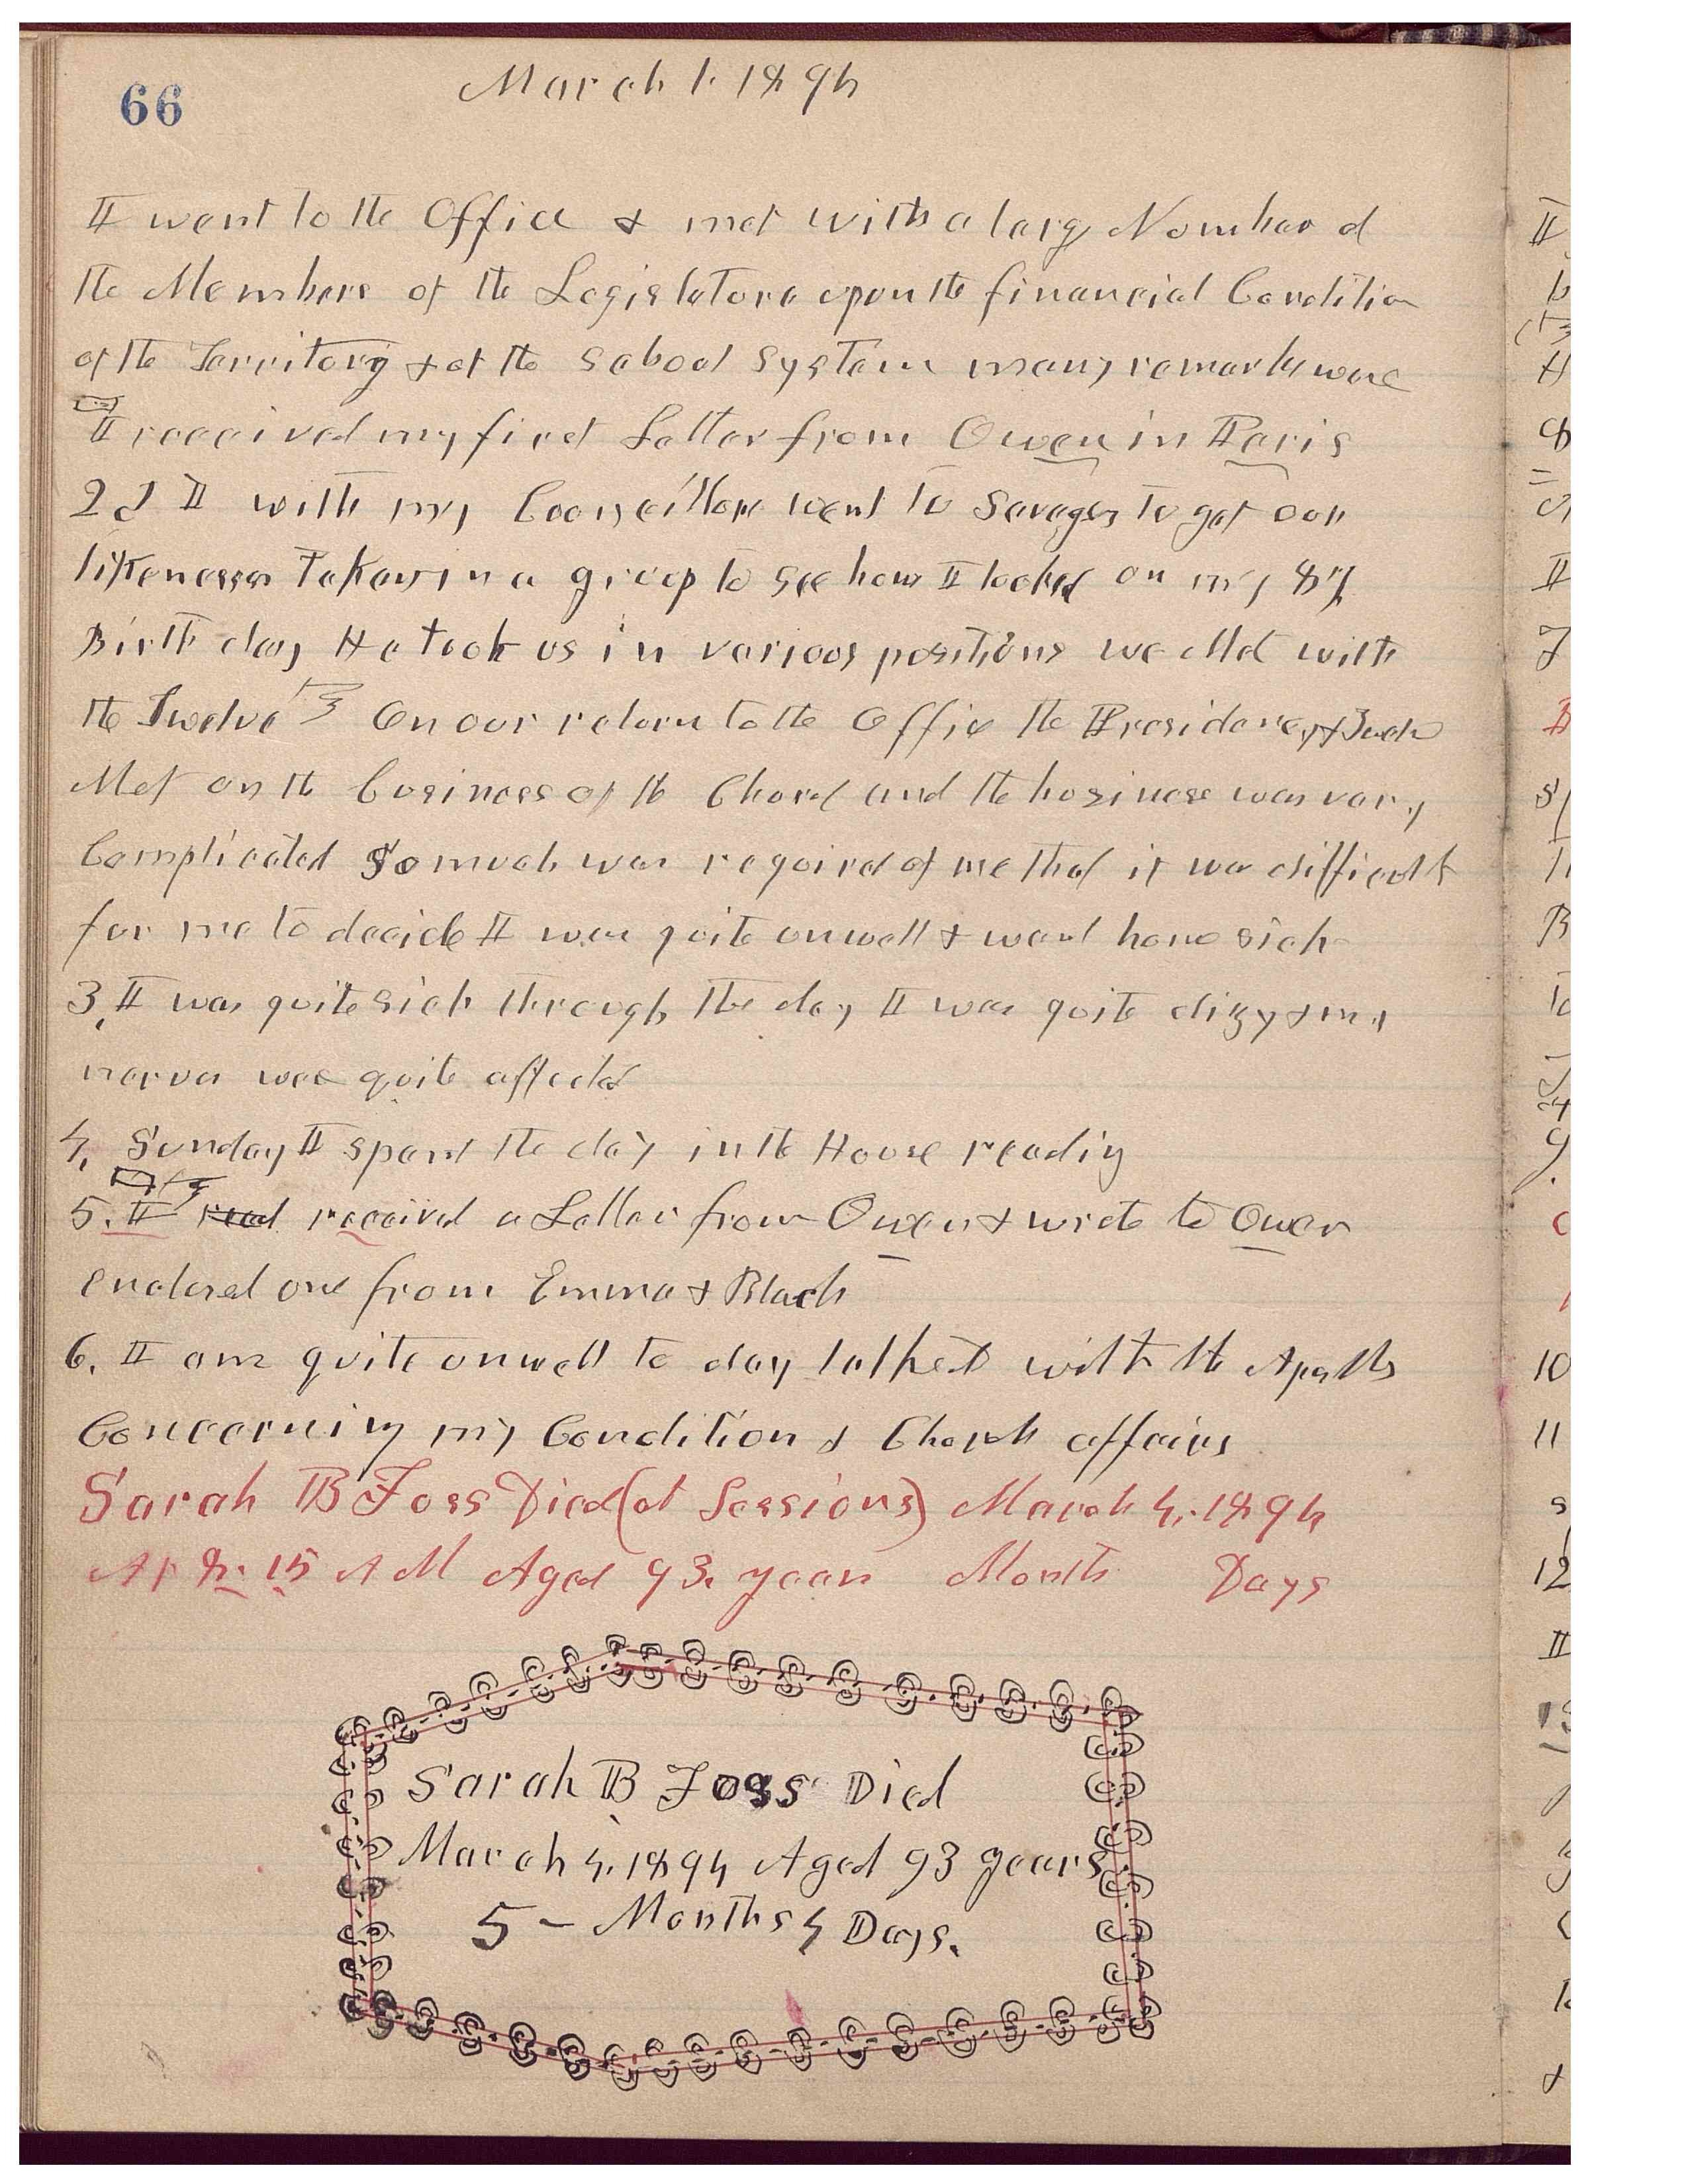 66 March 1. 1894
I went to the Office & met with a larg Number of
the Members of the Legislature upon the financial Condition
of the Territory & of the School System many remarks were
I received my first Letter from Owen in Paris
2d I with my Councillors went to Savages to get our
likenesses Taken in a group to see how I looked on my 87
Birth day He took us in various positions we Met with
the Twelve On our return to the Office the Presidency &
Met on the business of the Church and the business was vary
Complicated So much was required of me that it was difficult
for me to decide I was quite unwell & went home sick
3, I was quite sick through the day I was quite dizy & my
nerves was quite affected
4, Sunday I spent the day in the House readig
5. I read received a Letter from Owen & wrote to Owen
Enclosed one from Emma & Blach
6. I am quite unwell to day talked with the Apostls
Concerning my Condition & Church affairs
Sarah B Foss Died (at Sessions) March 4, 1894
At 8. 15 A M Aged 93. years Month Days
Sarah B Foss Died
March 4, 1894 Aged 93 years
5 - Months 4 Days.